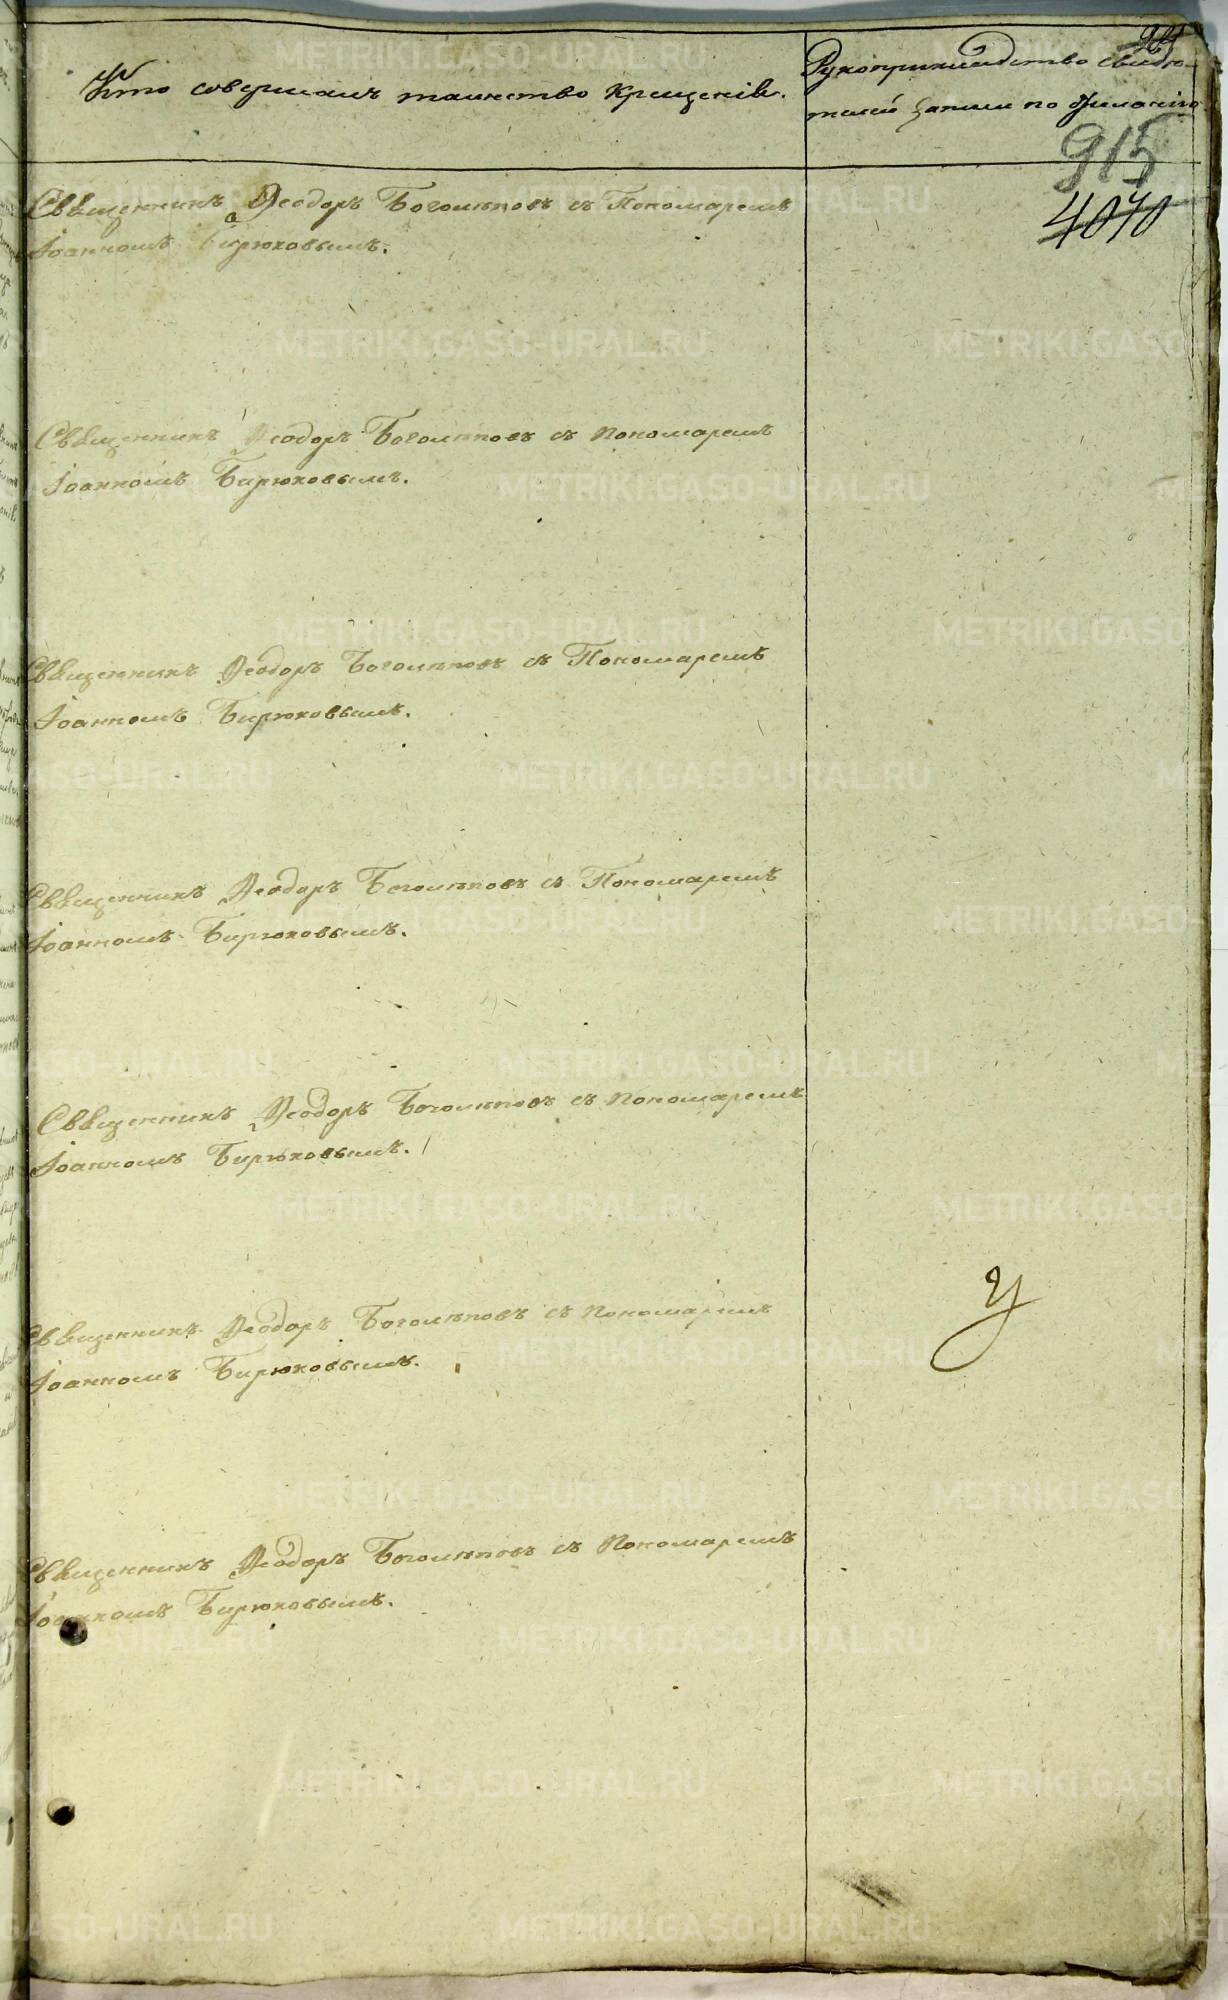 Кто совершалъ таинство Крещенія.
Рукоприкладство свидѣ-
телей записи по желанію
915
4070
Священникъ Ѳеодоръ Боголѣповъ съ Пономаремъ
Іоанномъ Бирюковымъ.
Священникъ Ѳеодоръ Боголѣповъ съ Пономаремъ
Іоанномъ Бирюковымъ.
Священникъ Ѳеодоръ Боголѣповъ съ Пономаремъ
Іоанномъ Бирюковымъ.
Священникъ Ѳеодоръ Боголѣповъ съ Пономаремъ
Іоанномъ Бирюковымъ.
Священникъ Ѳеодоръ Боголѣповъ съ Пономаремъ
Іоанномъ Бирюковымъ.
Священникъ Ѳеодоръ Боголѣповъ съ Пономаремъ
Іоанномъ Бирюковымъ.
У
Священникъ Ѳеодоръ Боголѣповъ съ Пономаремъ
Іоанномъ Бирюковымъ.
METRIKI.GASO-URAL.RU